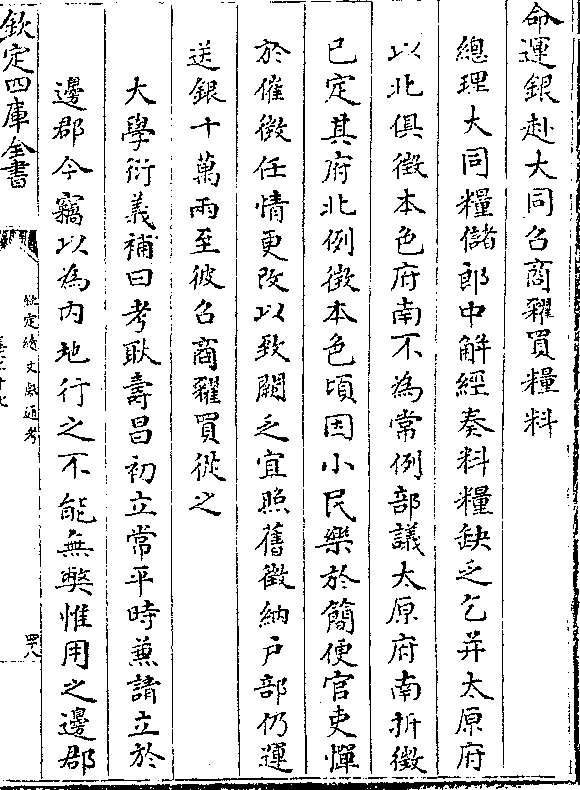 命運銀赴大同召商糴買糧料
總理大同糧儲郎中解經奏料糧缺乏乞并太原府
以北俱徴本色府南不為常例部議太原府南折徴
已定其府北例徴本色頃因小民樂於簡便官吏憚
於催徴任情更改以致闕乏宜照舊徴納户部仍運
送銀十萬兩至彼召商糴買從之
大學衍義補曰考耿壽昌初立常平時兼請立於
邊郡今竊以為内地行之不能無弊惟用之邊郡
欽定四庫全書
欽定續文獻通考
四八